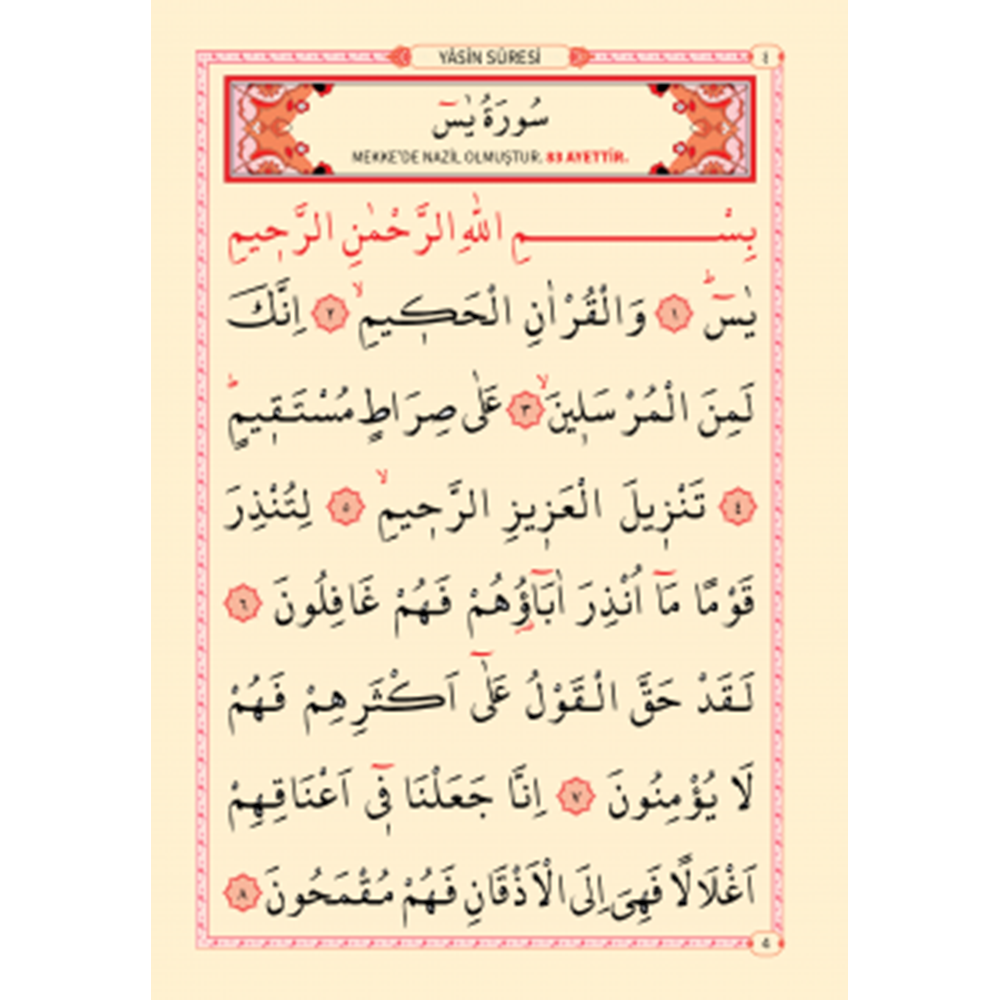 YÂSÎN SÛRESİ
٤
سُورَةُ يٰسٓ
MEKKE'DE NAZİL OLMUŞTUR. 83 AYETTİR.
بِسْمِ اللّٰهِ الرَّحْمٰنِ الرَّح۪يمِ
يٰسٓۜ ﴿١﴾ وَالْقُرْاٰنِ الْحَك۪يمِۙ ﴿٢﴾ اِنَّكَ
لَمِنَ الْمُرْسَل۪ينَۙ ﴿٣﴾ عَلٰى صِرَاطٍ مُسْتَق۪يمٍۜ
﴿٤﴾ تَنْز۪يلَ الْعَز۪يزِ الرَّح۪يمِۙ ﴿٥﴾ لِتُنْذِرَ
قَوْمًا مَٓا اُنْذِرَ اٰبَٓاؤُ۬هُمْ فَهُمْ غَافِلُونَ ﴿٦﴾
لَقَدْ حَقَّ الْقَوْلُ عَلٰٓى اَكْثَرِهِمْ فَهُمْ
لَا يُؤْمِنُونَ ﴿٧﴾ اِنَّا جَعَلْنَا ف۪ٓي اَعْنَاقِهِمْ
اَغْلَالًا فَهِيَ اِلَى الْاَذْقَانِ فَهُمْ مُقْمَحُونَ ﴿٨﴾
4